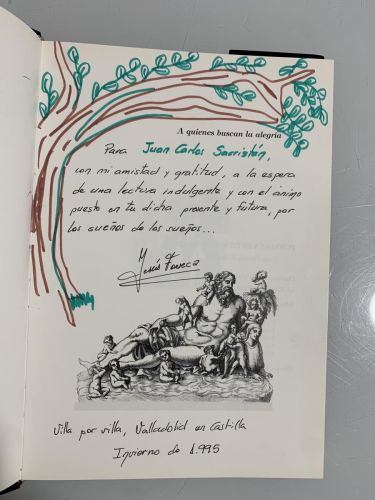 A quienes buscan la alegría
Para Juan Carlos Sarristán,
con mi amistad y gratitud, a la espera
de una lectura indulgente y con el ánimo
puesto en tu dicha presente y futura, por
los sueños de los sueños...
Jesús Fonseca
Villa por villa, Valladolid en Castilla
Invierno de 1.995